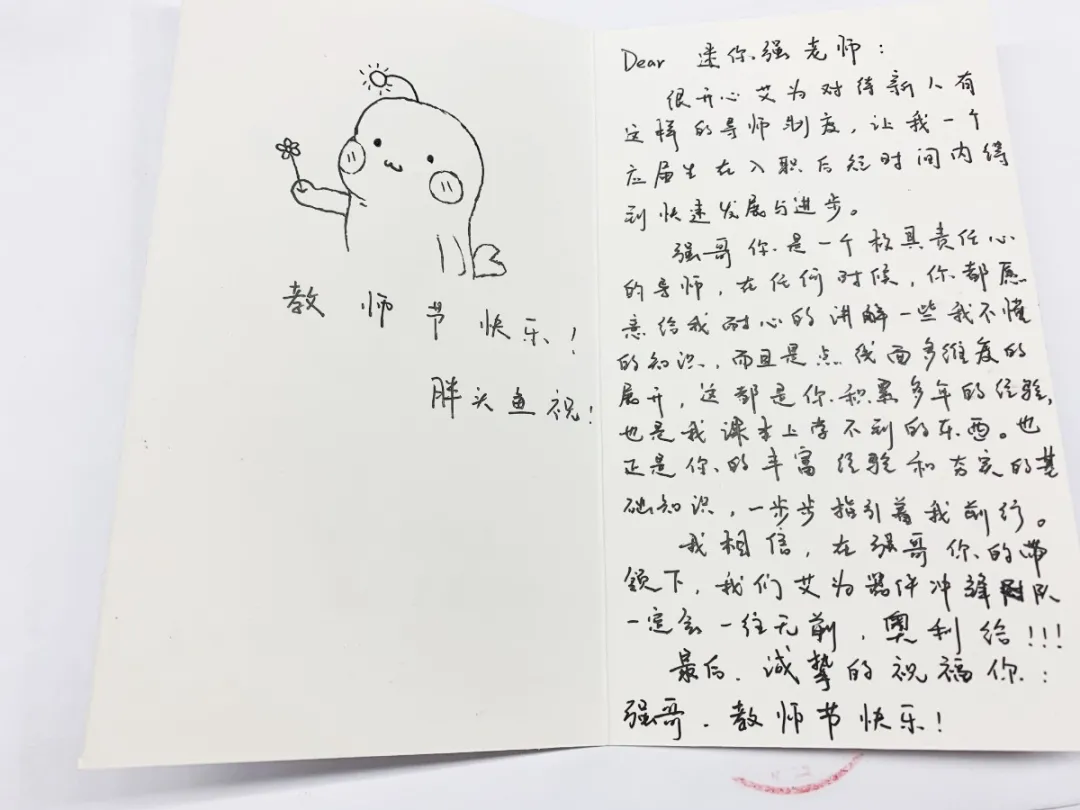 教师节快乐!
胖头鱼祝!
Dear 迷你强老师:
很开心艾为对待新人有
这样的导师制度,让我一个
应届生在入职后短时间内得
到快速发展与进步。
强哥你是一个极具责任心
的导师,在任何时候,你都愿
意给我耐心的讲解一些我不懂
的知识,而且是点线面多维度的
展开,这都是你积累多年的经验,
也是我课本上学不到的东西。也
正是你的丰富经验和夯实的基
础知识,一步步指引着我前行。
我相信,在强哥你的带
领下,我们艾为器件冲锋队
一定会一往无前,奥利给!!!
最后,诚挚的祝福你:
强哥,教师节快乐!